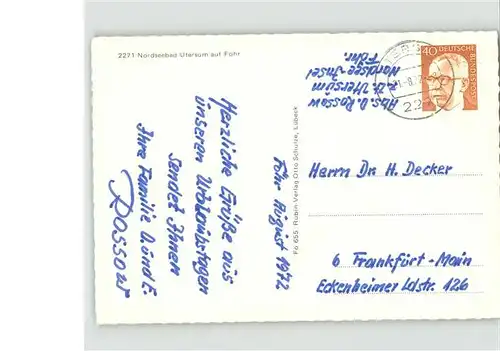 2271 Nordseebad Utersum auf Föhr
Föhr August 1972
Herzliche Grüße aus
unseren Urlaubstagen
sendet Ihnen
Ihre Familie O. und E.
Rossow
Fö 655 Rubin-Verlag Otto Schulze, Lübeck
Abs. O. Rossow
z.Zt. Utersum
Nordsee-Insel
Föhr.
40 DEUTSCHE
BUNDESPOST
Herrn Dr. H. Decker
6 Frankfurt-Main
Eckenheimer Ldstr. 126